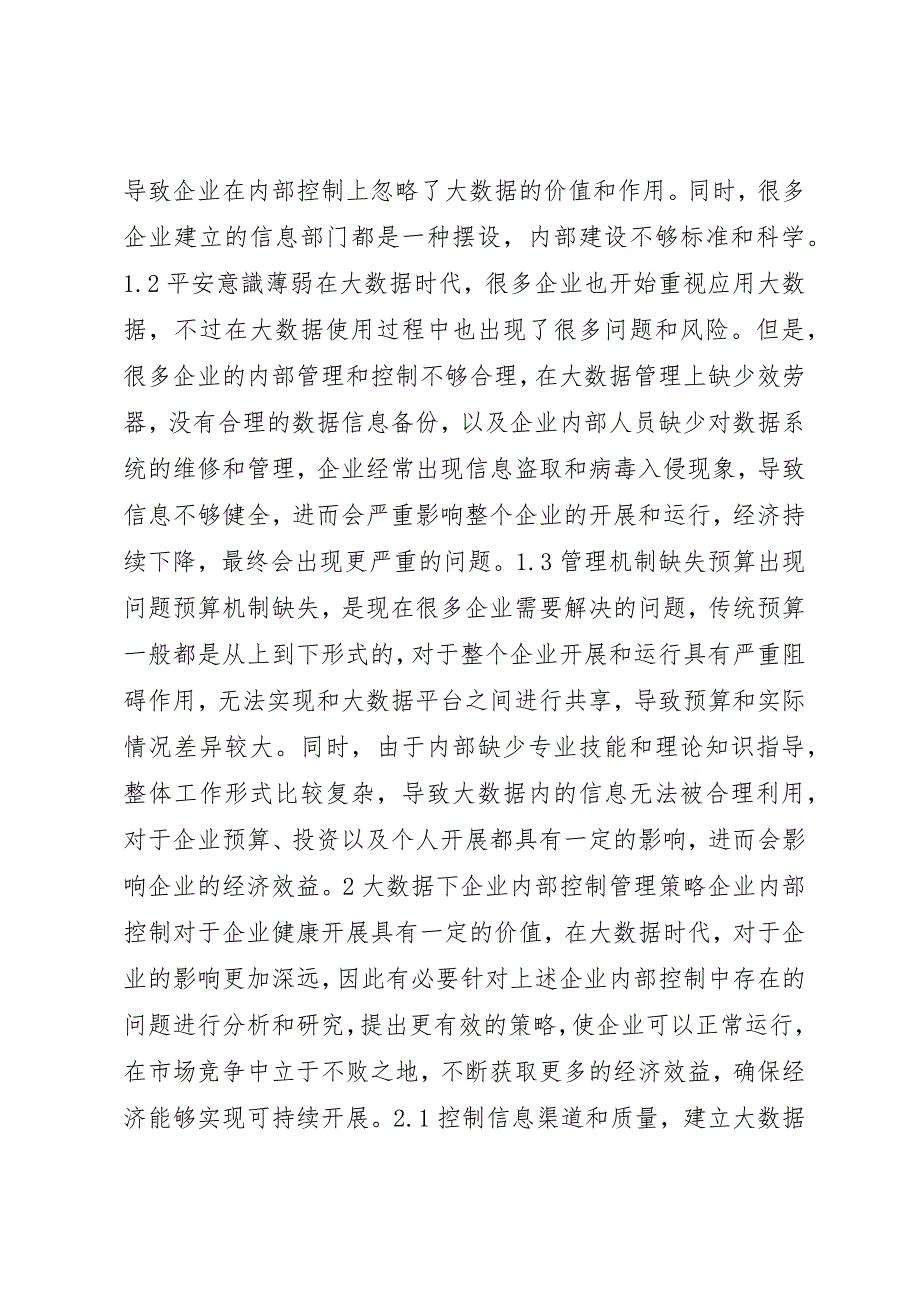 导致企业在内部控制上忽略了大数据的价值和作用。同时，很多
企业建立的信息部门都是一种摆设，内部建设不够标准和科学。
1.2平安意識薄弱在大数据时代，很多企业也开始重视应用大数
据，不过在大数据使用过程中也出现了很多问题和风险。但是，
很多企业的内部管理和控制不够合理，在大数据管理上缺少效劳
器，没有合理的数据信息备份，以及企业内部人员缺少对数据系
统的维修和管理，企业经常出现信息盗取和病毒入侵现象，导致
信息不够健全，进而会严重影响整个企业的开展和运行，经济持
续下降，最终会出现更严重的问题。1.3管理机制缺失预算出现
问题预算机制缺失，是现在很多企业需要解决的问题，传统预算
一般都是从上到下形式的，对于整个企业开展和运行具有严重阻
碍作用，无法实现和大数据平台之间进行共享，导致预算和实际
情况差异较大。同时，由于内部缺少专业技能和理论知识指导，
整体工作形式比较复杂，导致大数据内的信息无法被合理利用，
对于企业预算、投资以及个人开展都具有一定的影响，进而会影
响企业的经济效益。2大数据下企业内部控制管理策略企业内部
控制对于企业健康开展具有一定的价值，在大数据时代，对于企
业的影响更加深远，因此有必要针对上述企业内部控制中存在的
问题进行分析和研究，提出更有效的策略，使企业可以正常运行，
在市场竞争中立于不败之地，不断获取更多的经济效益，确保经
济能够实现可持续开展。2.1控制信息渠道和质量，建立大数据